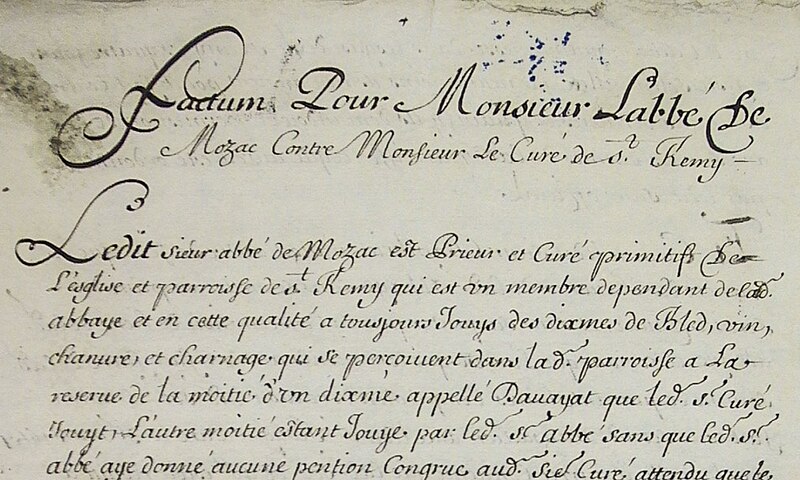 Factum Pour Monsieur L'abbé De
Mozac Contre Monsieur Le Curé de st. Remy -
Ledit sieur abbé de Mozac est Prieur et Curé primitif De
L'esglise et parroisse de st. Remy qui est vn membre dependant de lad.
abbaye et en cette qualité a tousjours Jouys des dixmes de Bled, vin,
chanure, et charnage qui se perçoiuent dans lad. parroisse a La
reserue de la moitié d'vn dixme appellé Dauayat que led. sr. Curé
Jouyt, L'autre moitié estant Jouye par led. sr. abbé sans que led. sr.
abbé aye donné aucune pention Congrue aud. sie. Curé attendu que le